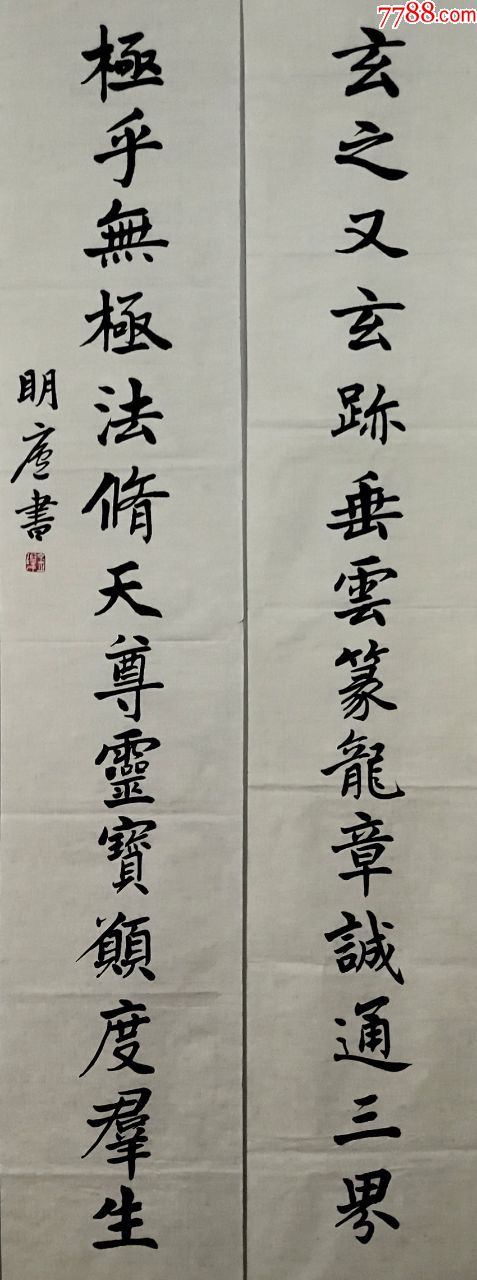 7788.com
玄之又玄跡垂雲篆龍章誠通三界
極乎無極法脩天尊靈寶願度羣生
明廬書